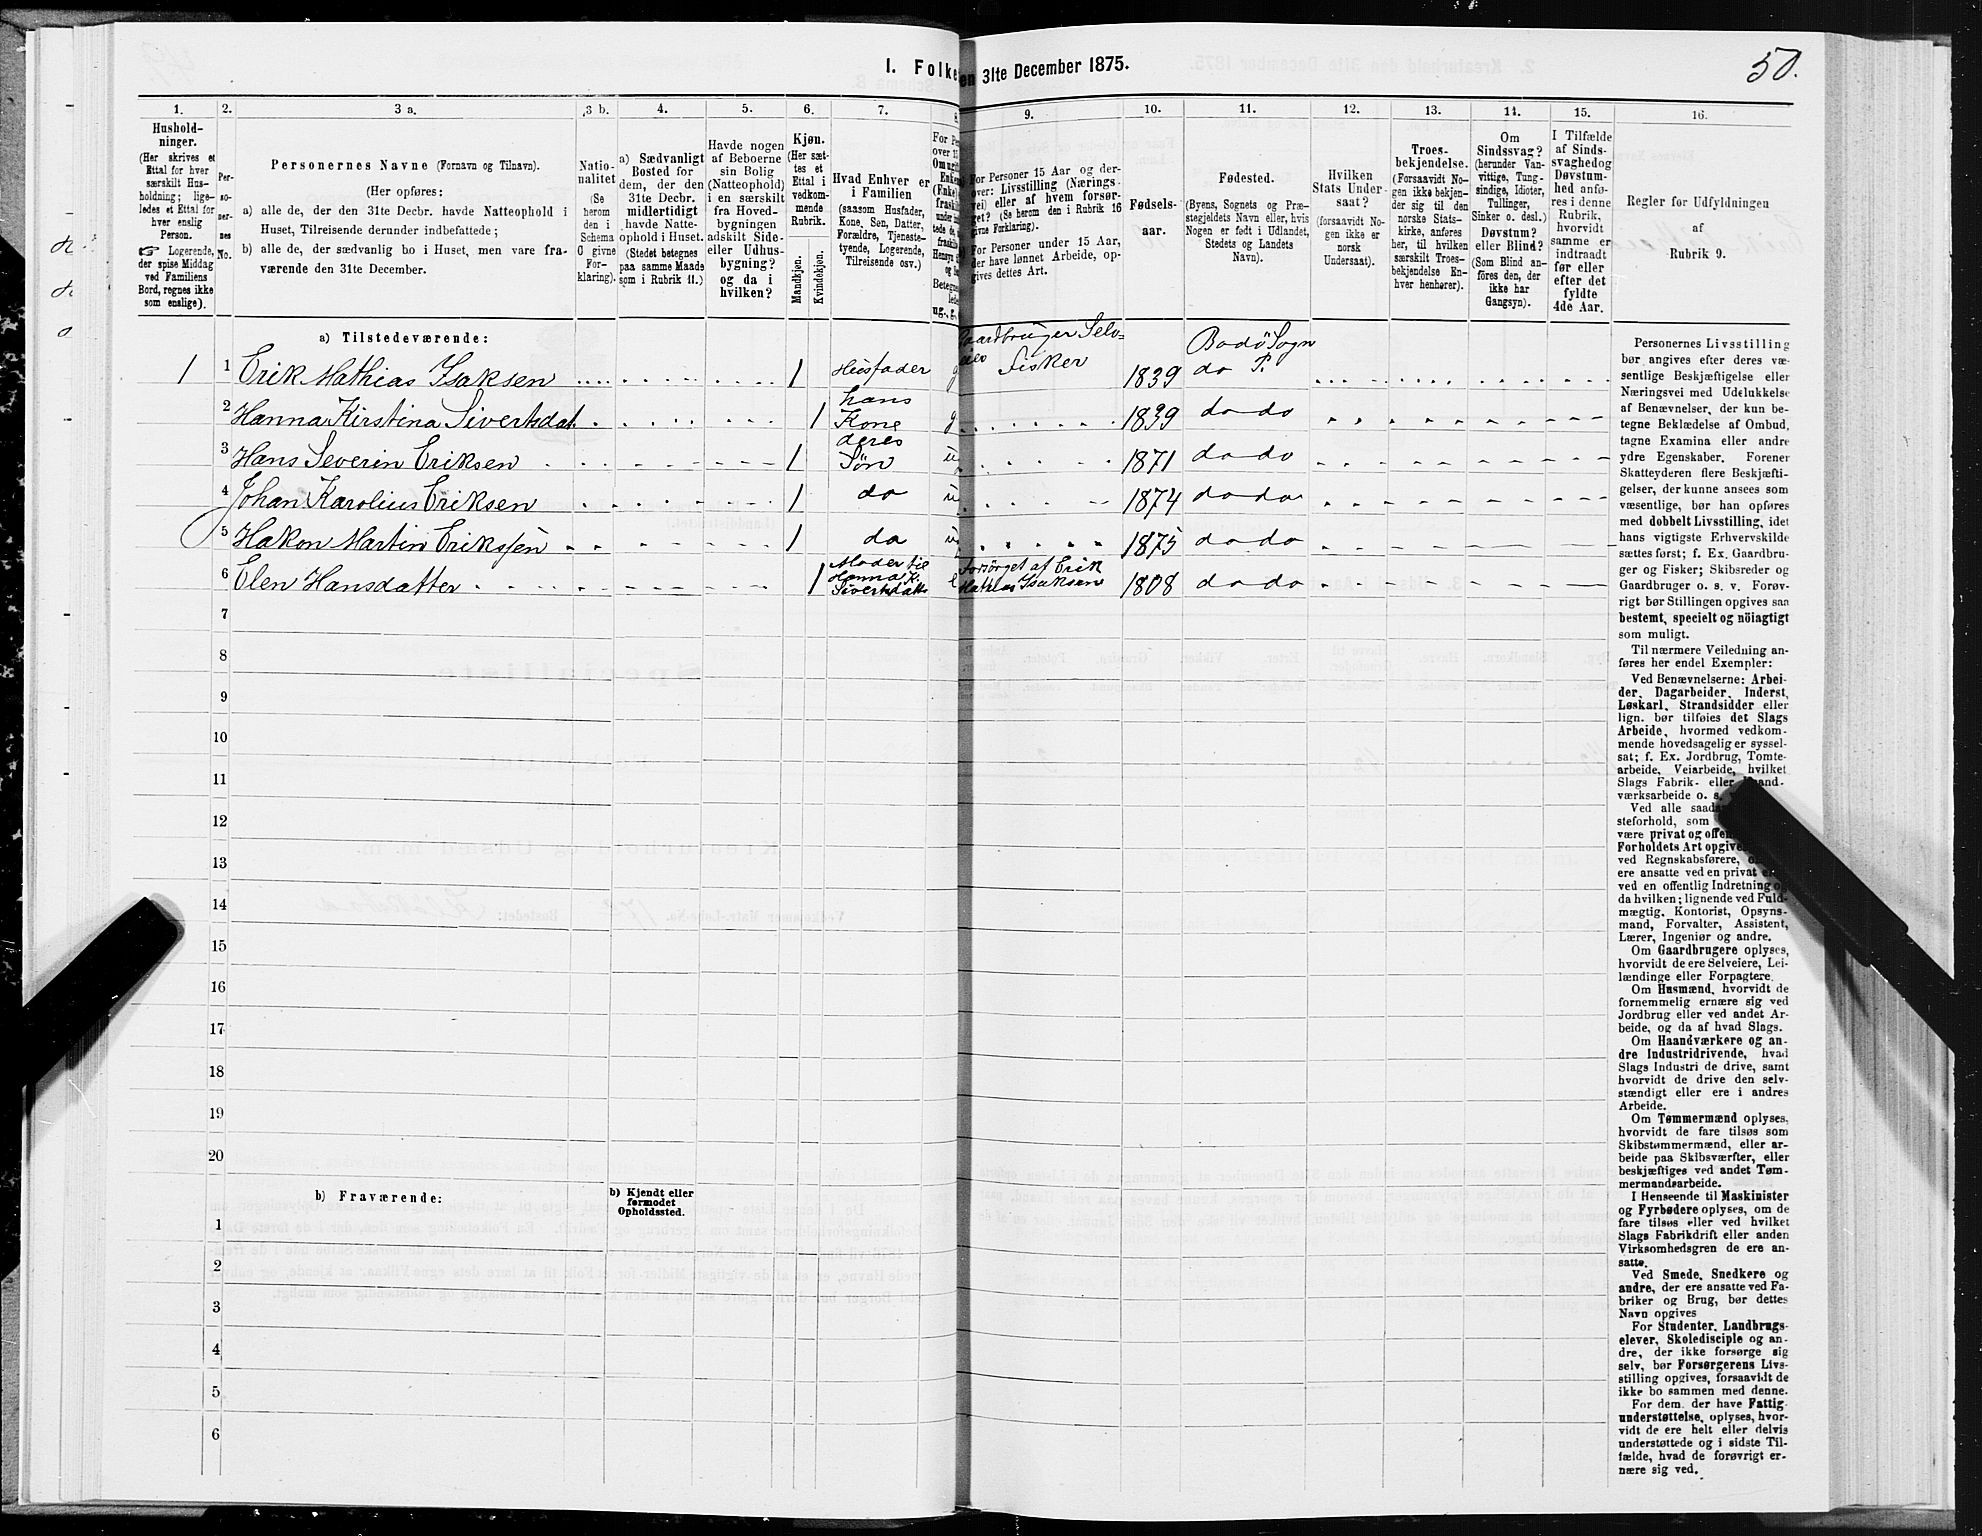 50.
I. Folke
en 31te December 1875.
1.
2.
3 a.
3 b.
4.
5.
6.
7.
8.
9.
10.
11.
12.
13.
14.
15.
16.
Hushold-
ninger.
(Her skrives et
Ettal for hver
særskilt Hus-
holdning; lige-
ledes et Ettal for
hver enslig
Person.
☞ Logerende,
der spise Middag
ved Familiens
Bord, regnes ikke
som enslige).
Per-
so-
ner-
nes
No.
Personernes Navne (Fornavn og Tilnavn).
(Her opføres:
a) alle de, der den 31te Decbr. havde Natteophold i
Huset, Tilreisende derunder indbefattede;
b) alle de, der sædvanlig bo i Huset, men vare fra-
værende den 31te December.
Natio-
nalitet
(Se
herom
den i
Schema
G givne
For-
klaring).
a) Sædvanligt
Bosted for
dem, der den
31te Decbr.
midlertidigt
havde Natte-
ophold i Huset.
(Stedet betegnes
paa samme Maade
som i Rubrik 11.)
Havde nogen
af Beboerne
sin Bolig
(Natteophold)
i en særskilt
fra Hoved-
bygningen
adskilt Side-
eller Udhus-
bygning?
og da i
hvilken?
Kjøn.
(Her sæt-
tes et
Ettal i
vedkom-
mende
Rubrik.
Mandkjøn.
Kvindekjøn.
Hvad Enhver er
i Familien
(saasom Husfader,
Kone, Søn, Datter,
Forældre, Tjeneste-
tyende, Logerende,
Tilreisende osv.)
For Personer 15 Aar og der-
over: Livsstilling (Nærings-
vei) eller af hvem forsør-
get? (Se herom den i Rubrik 16
givne Forklaring).
For Personer under 15 Aar,
der have lønnet Arbeide, op-
gives dettes Art.
Fødsels-
aar.
Fødested.
(Byens, Sognets og Præ-
stegjeldets Navn eller, hvis
Nogen er født i Udlandet,
Stedets og Landets
Navn).
Hvilken
Stats Under-
saat?
(forsaavidt No-
gen ikke er
norsk
Undersaat).
Troes-
bekjendelse.
(Forsaavidt No-
gen ikke bekjen-
der sig til den
norske Stats-
kirke, anføres
her, til hvilken
særskilt Troes-
bekjendelse En-
hver henhører).
Om
Sindssvag?
(herunder Van-
vittige, Tung-
sindige, Idioter,
Tullinger,
Sinker o. desl.)
Døvstum?
eller Blind?
(Som Blind an-
føres den, der
ikke har
Gangsyn).
I Tilfælde
af Sinds-
svaghedog
Døvstum-
hed anfø-
res i denne
Rubrik,
hvorvidt
samme er
indtraadt
før eller
efter det
fyldte
4de Aar.
Regler for Udfyldningen
af
Rubrik 9.
a) Tilstedeværende:
1 1 Erik Mathias Isaksen 1 Husfader g Gaardbruger Selv- eier Fisker 1839 Bodö Sogn do P.
2 Hanna Kirstina Sivertsdat. 1 hans Kone g 1839 do do
3 Hans Severin Eriksen 1 deres Søn u 1871 do do
4 Johan Karolius Eriksen 1 do u 1874 do do
5 Hakon Martin Erikssen 1 do u 1875 do do
6 Elen Hansdatter 1 Moder til Hanna K. Sivertsdatt. e Forsörget af Erik Mathias Isaksen 1808 do do
7
8
9
10
11
12
13
14
15
16
17
18
19
20
b) Fraværende:
b) Kjendt eller
formodet
Opholdssted.
1
2
3
4
5
6
Personernes Livsstilling
bør angives efter deres væ-
sentlige Beskjæftigelse eller
Næringsvei med Udelukkelse
af Benævnelser, der kun be-
tegne Beklædelse af Ombud,
tagne Examina eller andre
ydre Egenskaber. Forener
Skatteyderen flere Beskjæfti-
gelser, der kunne ansees som
væsentlige, bør han opføres
med dobbelt Livsstilling, idet
hans vigtigste Erhvervskilde
sættes først; f. Ex. Gaardbru-
ger og Fisker; Skibsreder og
Gaardbruger o. s. v. Forøv-
rigt bør Stillingen opgives saa
bestemt, specielt og nöiagtigt
som muligt.
Til nærmere Veiledning an-
føres her endel Exempler:
Ved Benævnelserne: Arbei-
der, Dagarbeider, Inderst,
Løskarl, Strandsidder eller
lign. bør tilføies det Slags
Arbeide, hvormed vedkom-
mende hovedsagelig er syssel-
sat; f. Ex. Jordbrug, Tomte-
arbeide, Veiarbeide, hvilket
Slags Fabrik- eller Haand-
værksarbeide o. s.
Ved alle saada
steforhold, som
være privat og offen
Forholdets Art opgive
ved Regnskabsførere,
ere ansatte ved en privat
ved en offentlig Indretning og
da hvilken; lignende ved Fuld-
mægtig, Kontorist, Opsyns-
mand, Forvalter, Assistent,
Lærer, Ingeniør og andre.
Om Gaardbrugere oplyses,
hvorvidt de ere Selveiere, Lei-
lændinge eller Forpagtere.
Om Husmænd, hvorvidt de
fornemmelig ernære sig ved
Jordbrug eller ved andet Ar-
beide, og da af hvad Slags.
Om Haandværkere og an-
dre Industridrivende, hvad
Slags Industri de drive, samt
hvorvidt de drive den selv-
stændigt eller ere i andres
Arbeide.
Om Tømmermænd oplyses,
hvorvidt de fare tilsøs som
Skibstømmermænd, eller ar-
beide paa Skibsværfter, eller
beskjæftiges ved andet Tøm-
mermandsarbeide.
I Henseende til Maskinister
og Fyrbødere oplyses, om de
fare tilsøs eller ved hvilket
Slags Fabrikdrift eller anden
Virksomhedsgren de ere an-
satte.
Ved Smede, Snedkere og
andre, der ere ansatte ved Fa-
briker og Brug, bør dettes
Navn opgives
For Studenter, Landbrugs-
elever, Skoledisciple og an-
dre, der ikke forsørge sig
selv, bør Forsørgerens Livs-
stilling opgives, forsaavidt de
ikke bo sammen med denne.
For dem, der have Fattig-
understøttelse, oplyses, hvor-
vidt de ere helt eller delvis
understøttede og i sidste Til-
fælde, hvad de forøvrigt er-
nære sig ved.